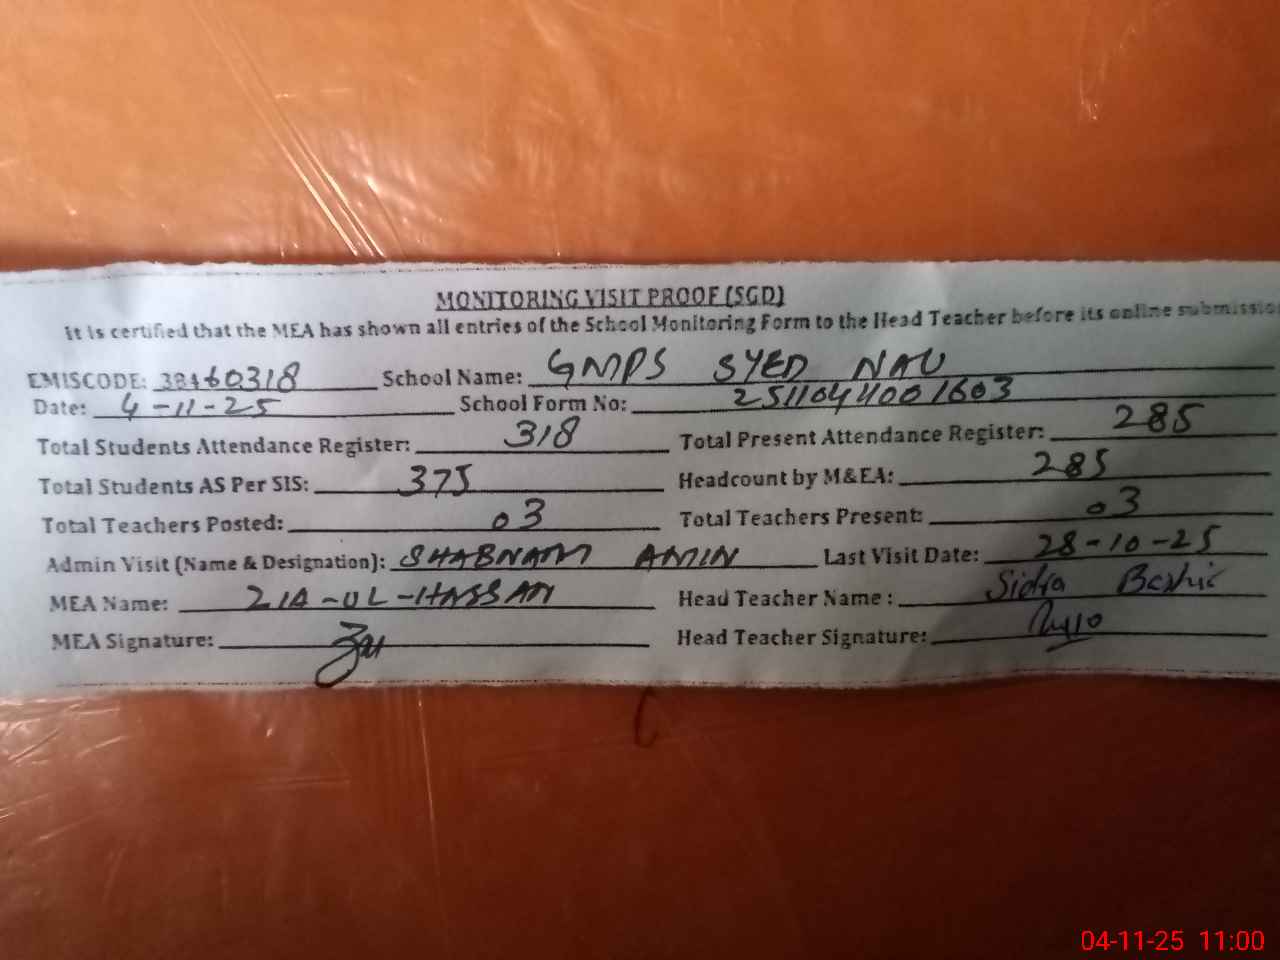 MONITORING VISIT PROOF (SGD)
it is certified that the MEA has shown all entries of the School Monitoring Form to the Head Teacher before its online submissio
EMISCODE: 38460318 School Name: GMPS SYED NAU
Date: 4-11-25 School Form No: 2511044001603
Total Students Attendance Register: 318 Total Present Attendance Register: 285
Total Students AS Per SIS: 375 Headcount by M&EA: 285
Total Teachers Posted: 03 Total Teachers Present: 03
Admin Visit (Name & Designation): SHABNAM AMIN Last Visit Date: 28-10-25
MEA Name: ZIA-UL-HASSAN Head Teacher Name : Sidra Bashir
MEA Signature: Head Teacher Signature:
04-11-25 11:00